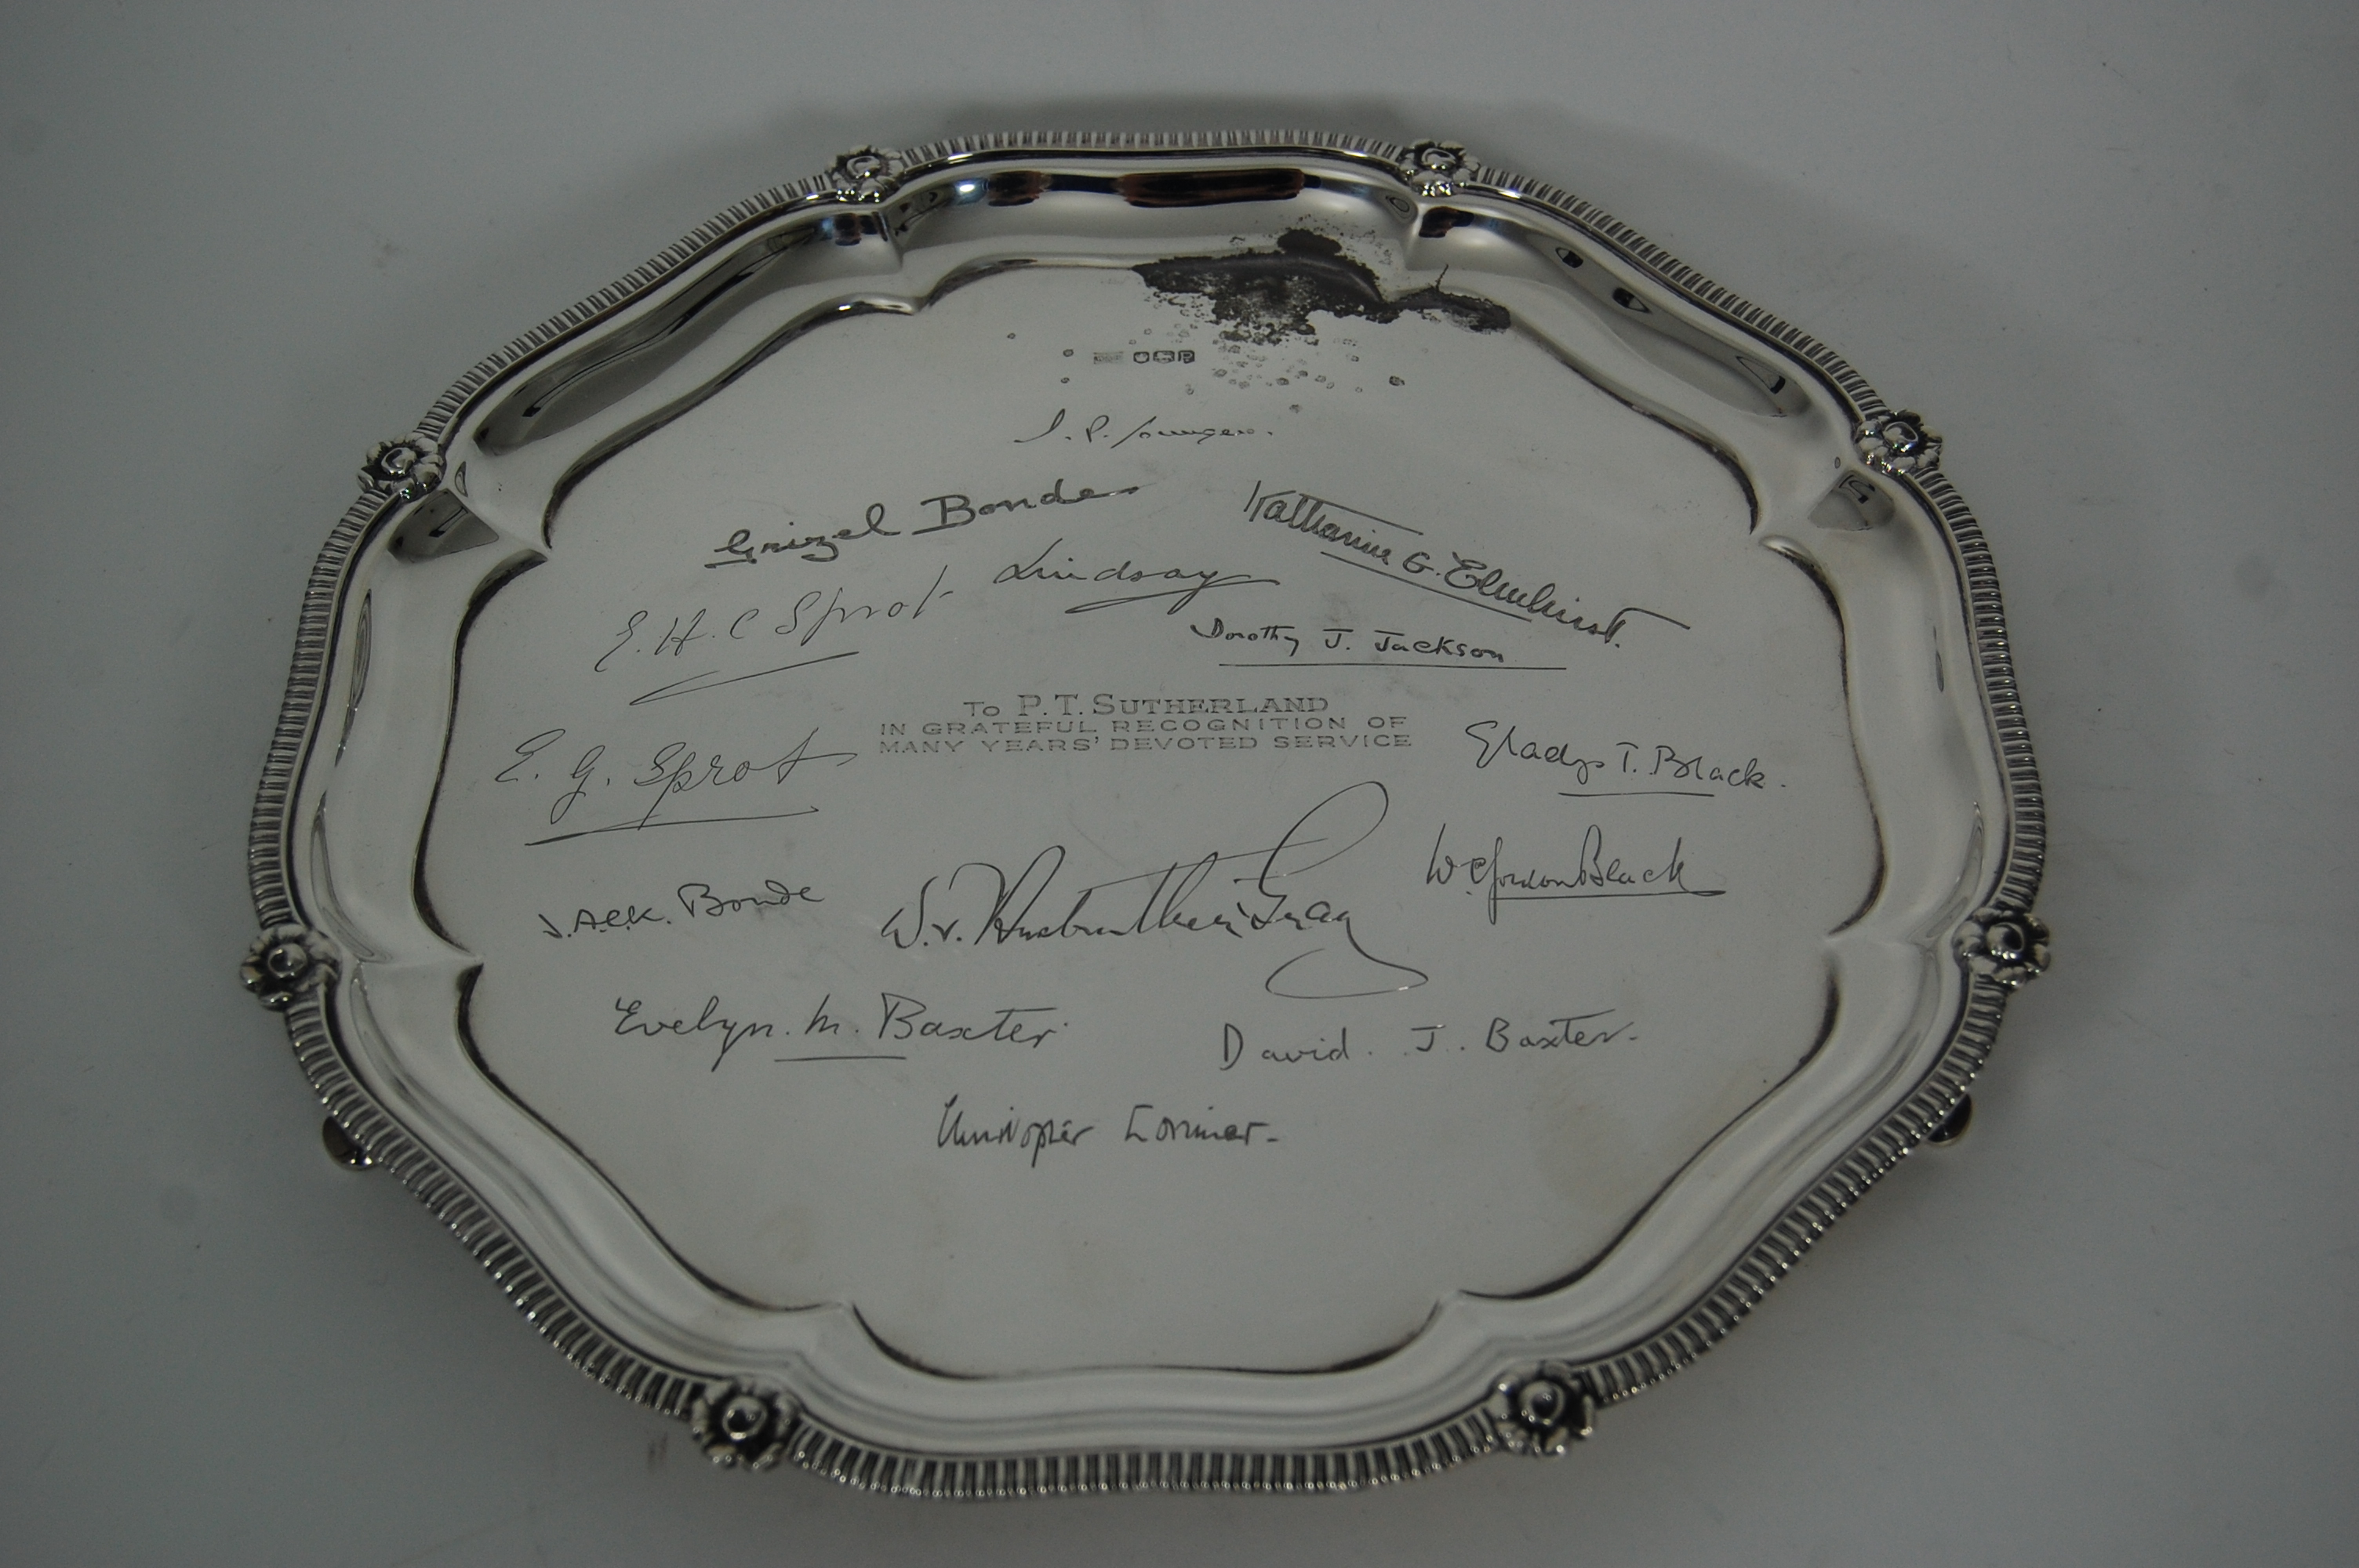 Grizel Bonde
Katharine G. Elmhirst.
Lindsay
E. H. C Sprot
Dorothy J. Jackson
TO P. T. SUTHERLAND
IN GRATEFUL RECOGNITION OF
MANY YEARS' DEVOTED SERVICE
E. G. Sprot
Gladys T. Black.
W. Gordon Black
Bonde
Gray
Evelyn. M. Baxter.
David. J. Baxter.
Christopher Lorimer.